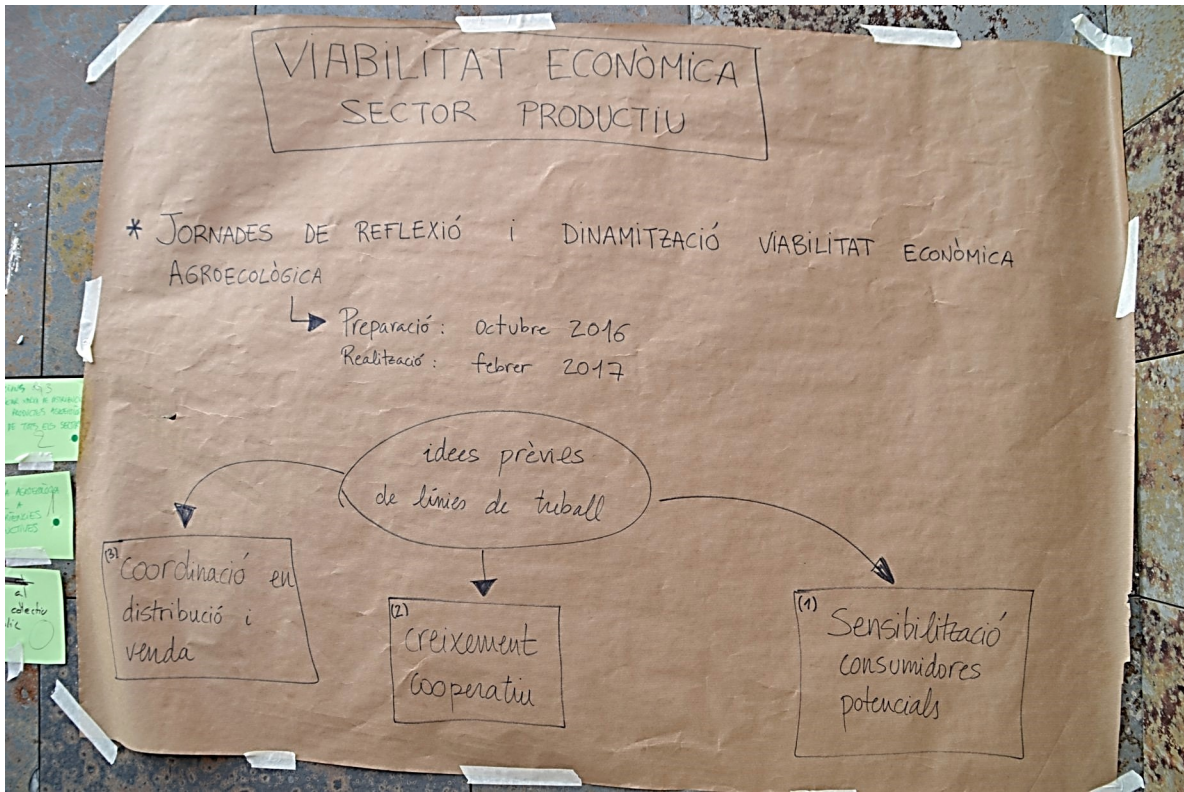 VIABILITAT ECONÒMICA
SECTOR PRODUCTIU
* JORNADES DE REFLEXIÓ i DINAMITZACIÓ VIABILITAT ECONÒMICA
AGROECOLÒGICA
Preparació: octubre 2016
Realització: febrer 2017
idees prèvies
de línies de treball
(3) Coordinació en
distribució i
venda
(2)
Creixement
cooperatiu
(1)
Sensibilització
consumidores
potencials
PRODUCTES
DE TOTS ELS
AGROECOLÒGICA
A
al
colectiu